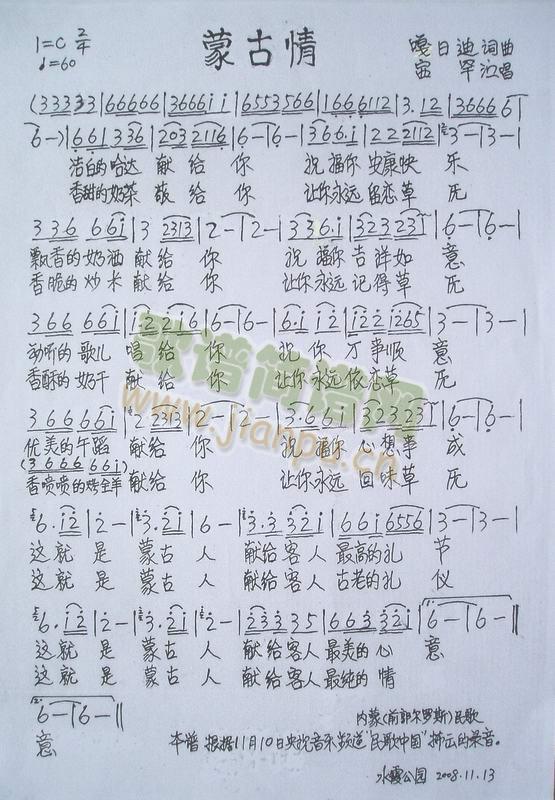 1=C 2/4 蒙古情 嘎日迪 词曲
♩=60 演唱
(33333|66666|3666ii|6553566|1666112|3.12|36666|
6-)|661336|2032116|6-|6-|366.i|222112|3-|3-|
洁白的哈达 献给 你 祝福你 安康快 乐
香甜的奶茶 献给 你 让你永远 留恋草 原
336 66i|3 2313|2-|2-|336.i|323231|6-|6-|
飘香的奶酒 献给 你 祝福你 吉祥如 意
香脆的炒米 献给 你 让你永远 记得草 原
366 66i|i.22i6|6-|6-|6.i i2|i22 i265|3-|3-|
动听的歌儿 唱给 你 祝你 万事顺 意
香酥的奶干 献给 你 让你永远依恋草 原
366 66i|2 2313|2-|2-|3.66i|323231|6-|6-|
优美的午蹈 献给 你 祝福你 心想事 成
(3666 66i)
香喷喷的烤全羊 献给 你 让你永远 回味草 原
6.i2|2-|3.2i|6-|3.3 32i|66i6556|3-|3-|
这就 是 蒙古 人 献给客人 最高的礼 节
这就 是 蒙古 人 献给客人 古老的礼 仪
6.i2|2-|3.2i|2-|23335|663 32i|6-|6-‖
这就 是 蒙古 人 献给客人 最美的心 意
这就 是 蒙古 人 献给客人 最纯的 情
6-|6-‖
意
内蒙(前郭尔罗斯)民歌
本谱 根据11月10日央视音乐频道"民歌中国"播出的录音。
水霞公园 2008.11.13
歌谱简谱网
www.jianpu.cn